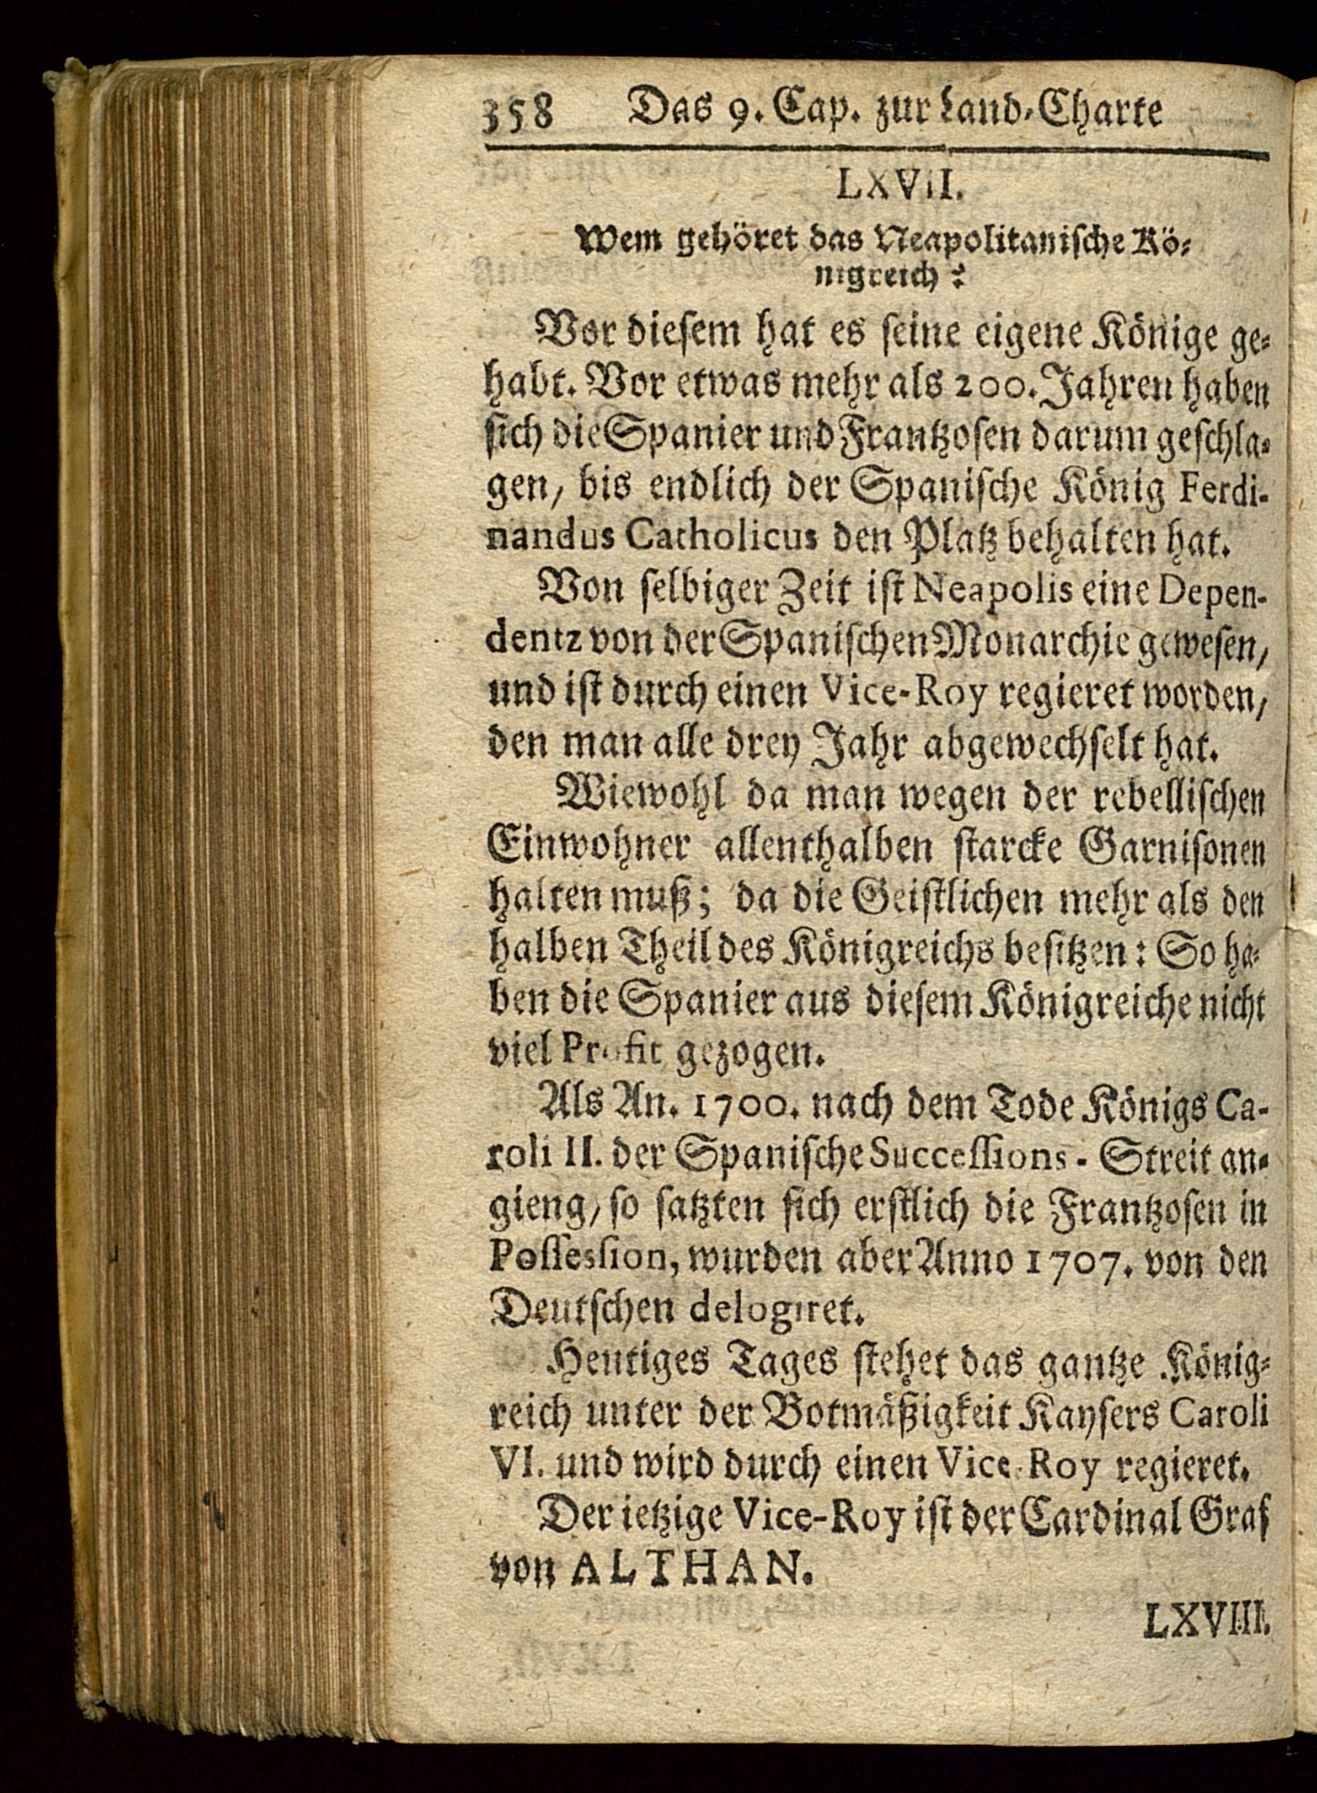 358 Das 9. Cap. zur Land-Charte
LXVII.
Wem gehöret das Neapolitanische Kö-
nigreich?
Vor diesem hat es seine eigene Könige ge-
habt. Vor etwas mehr als 200. Jahren haben
sich die Spanier und Frantzosen darum geschla-
gen, bis endlich der Spanische König Ferdi-
nandus Catholicus den Platz behalten hat.
Von selbiger Zeit ist Neapolis eine Depen-
dentz von der Spanischen Monarchie gewesen,
und ist durch einen Vice-Roy regieret worden,
den man alle drey Jahr abgewechselt hat.
Wiewohl da man wegen der rebellischen
Einwohner allenthalben starcke Garnisonen
halten muß; da die Geistlichen mehr als den
halben Theil des Königreichs besitzen: So ha-
ben die Spanier aus diesem Königreiche nicht
viel Profit gezogen.
Als An. 1700. nach dem Tode Königs Ca-
roli II. der Spanische Successions-Streit an-
gieng, so satzten sich erstlich die Frantzosen in
Possession, wurden aber Anno 1707. von den
Deutschen delogiret.
Heutiges Tages stehet das gantze König-
reich unter der Botmäßigkeit Kaysers Caroli
VI. und wird durch einen Vice-Roy regieret.
Der ietzige Vice-Roy ist der Cardinal Graf
von ALTHAN.
LXVIII.